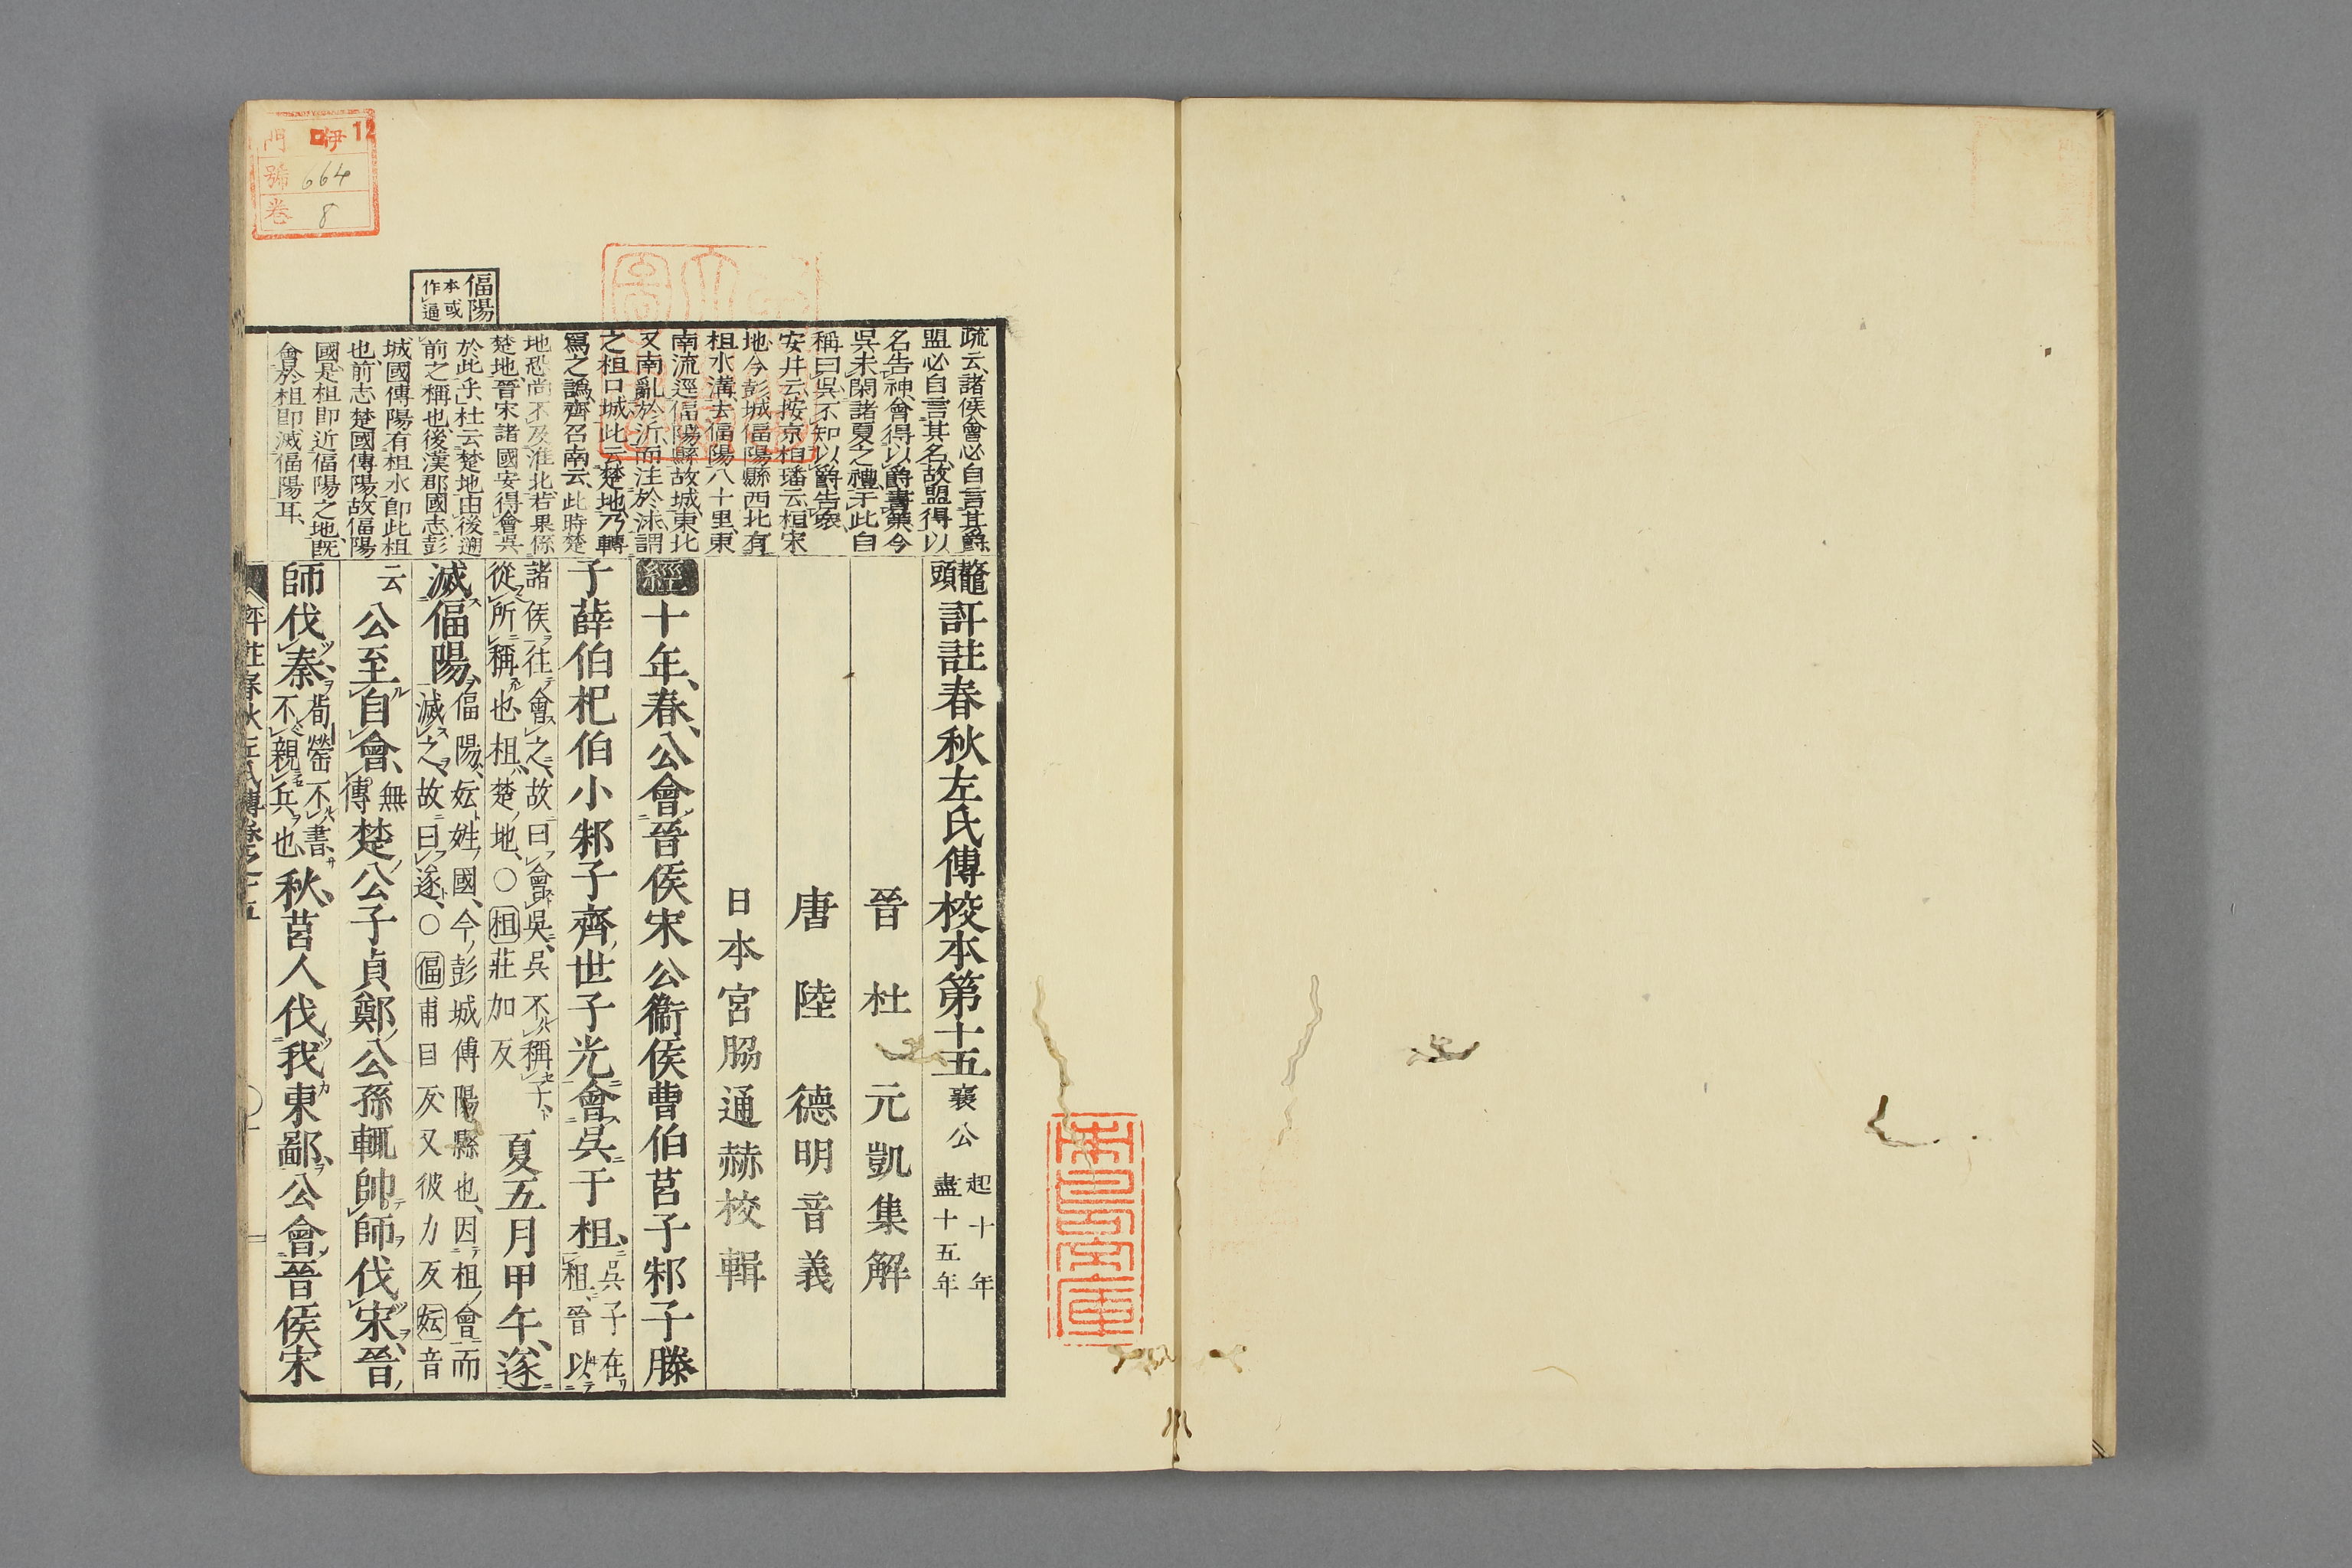 門 伊 12
號 664
卷 8
偪陽
本或
作逼
疏云諸侯會必自言其爵
盟必自言其名故盟得以
名告神會得以爵書策今
吳未閑諸夏之禮于此自
稱曰吳不知以爵告衆
安井云按京相璠云桓宋
地今彭城偪陽縣西北有
柤水溝去偪陽八十里東
南流逕偪陽縣故城東北
又南亂於沂而注於沭謂
之柤口城此云楚地乃轉
寫之譌齊召南云此時楚
地恐尚不及淮北若果係
楚地晉宋諸國安得會吳
於此乎杜云楚地由後遡
前之稱也後漢郡國志彭
城國傅陽有柤水卽此柤
也前志楚國傅陽故偪陽
國是柤卽近偪陽之地旣
會於柤卽滅偪陽耳
鼇頭評註春秋左氏傳校本第十五 襄公 起十年
盡十五年
晉 杜 元凱集解
唐 陸 德明音義
日本宮脇通赫校輯
經十年春公會晉侯宋公衞侯曹伯莒子邾子滕
子薛伯杞伯小邾子齊世子光會吳于柤 吳子在
柤晉以
諸侯往會之故曰會吳吳不稱子
從所稱也柤楚地○柤莊加反
夏五月甲午遂
滅偪陽 偪陽妘姓國今彭城傅陽縣也因柤會而
滅之故曰遂○偪甫目反又彼力反妘音
云 公至自會 無
傳 楚公子貞鄭公孫輒帥師伐宋晉
師伐秦 荀罃不書
不親兵也 秋莒人伐我東鄙公會晉侯宋
評註春秋左氏傳卷之十五